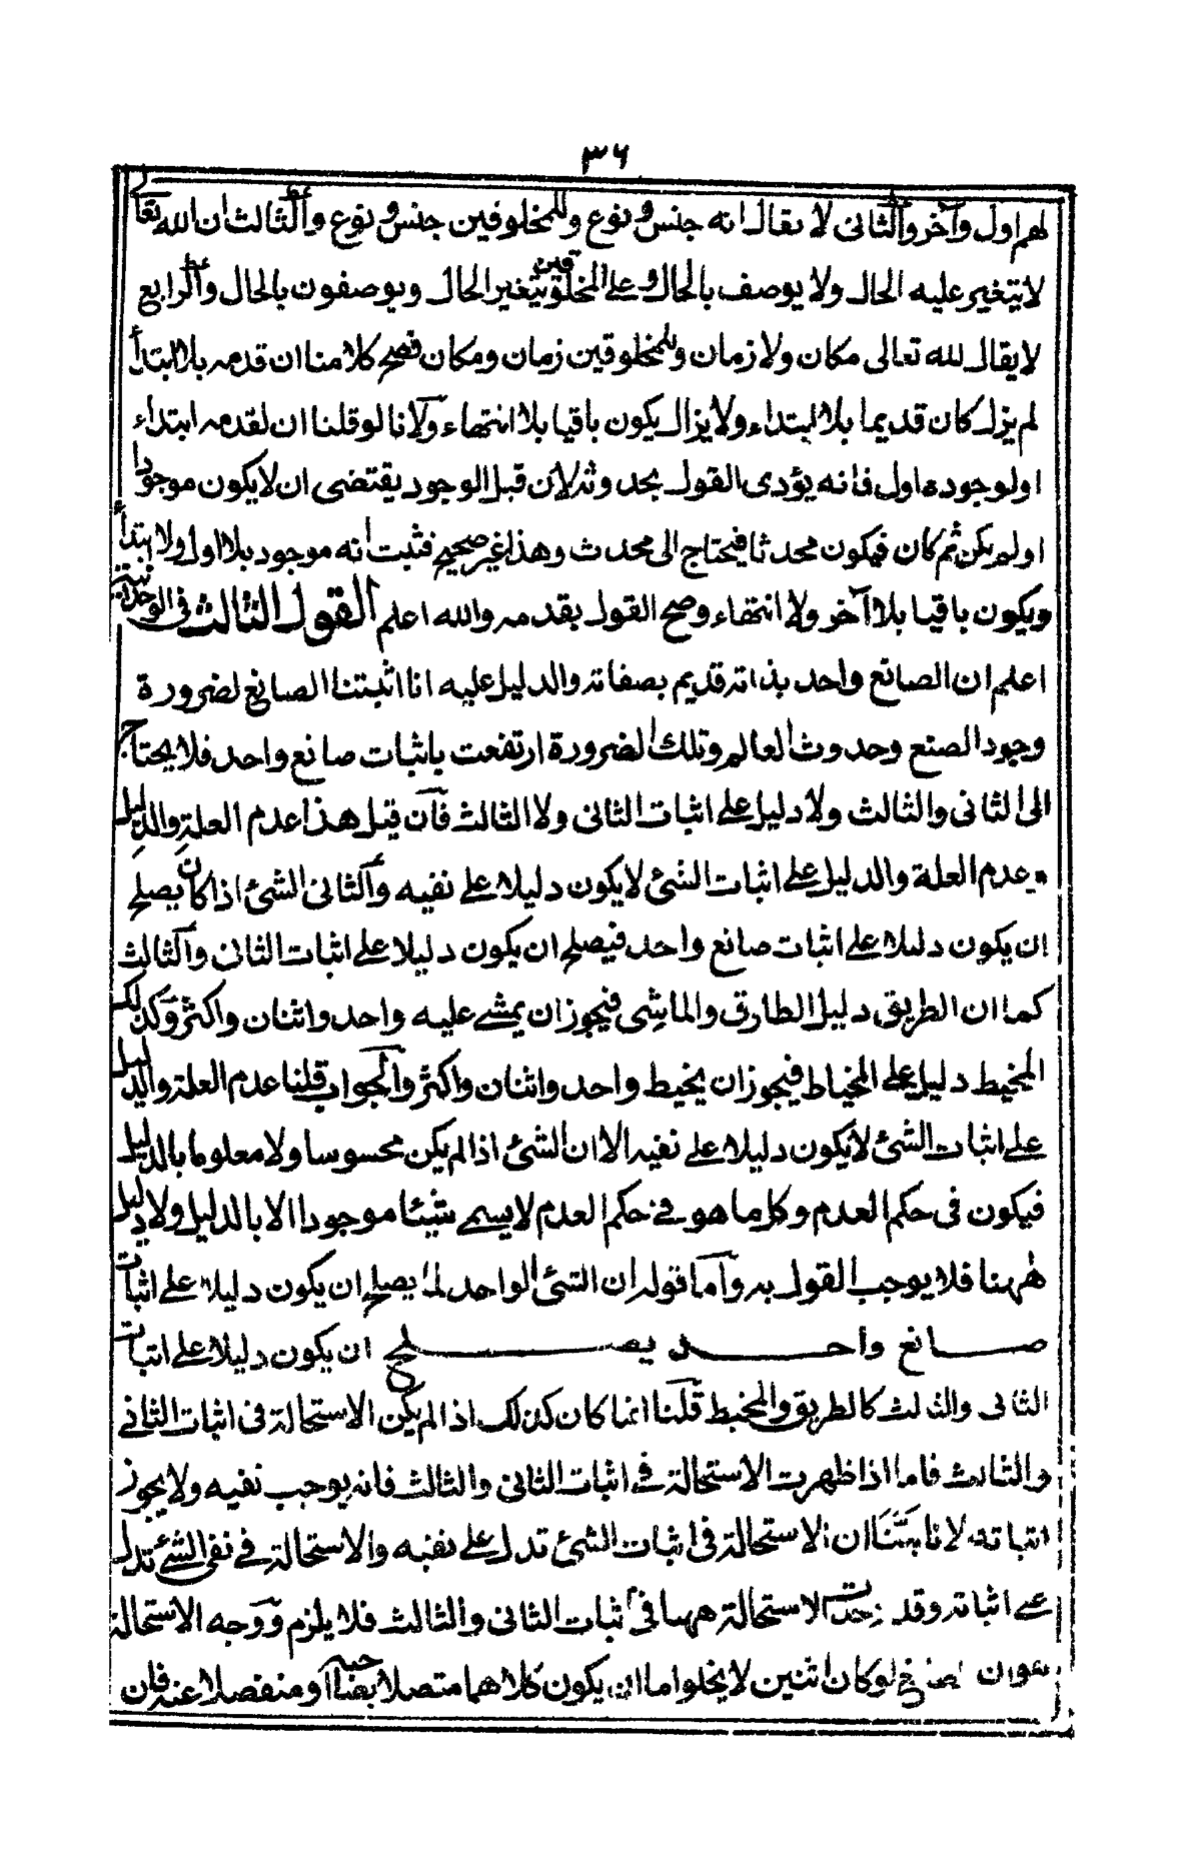 ٣٦
لهم اول وآخر والثانى لا يقال انه جنس و نوع وللمخلوقين جنس و نوع والثالث ان الله تعالى
لا يتغير عليه الحال ولا يوصف بالحال و على المخلوقين يتغير الحال ويوصفون بالحال والرابع
لا يقال لله تعالى مكان ولا زمان وللمخلوقين زمان ومكان فصح كلامنا ان قدمه بلا ابتداء
لم يزل كان قديما بلا ابتداء ولا يزال يكون باقيا بلا انتهاء ولانا لو قلنا ان لقدمه ابتداء
اولوجوده اول فانه يؤدى القول بحدوثه لان قبل الوجود يقتضى ان لا يكون موجودا
اولم يكن ثم كان فيكون محدثا فيحتاج الى محدث وهذا غير صحيح فثبت انه موجود بلا اول ولا ابتداء
ويكون باقيا بلا آخر ولا انتهاء وصح القول بقدمه والله اعلم القول الثالث فى الوحدانية
اعلم ان الصانع واحد بذاته قديم بصفاته والدليل عليه انا اثبتنا الصانع لضرورة
وجود الصنع وحدوث العالم وتلك الضرورة ارتفعت باثبات صانع واحد فلا يحتاج
الى الثانى والثالث ولا دليل على اثبات الثانى ولا الثالث فان قيل هذا عدم العلة والدليل
وعدم العلة والدليل على اثبات الشئ لا يكون دليلا على نفيه والثانى الشئ اذا كان يصلح
ان يكون دليلا على اثبات صانع واحد فيصلح ان يكون دليلا على اثبات الثانى والثالث
كما ان الطريق دليل الطارق والماشى فيجوز ان يمشے عليه واحد واثنان واكثر وكذلك
المخيط دليل على الخياط فيجوز ان يخيط واحد واثنان واكثر والجواب قلنا عدم العلة والدليل
على اثبات الشئ لا يكون دليلا على نفيه الا ان الشئ اذا لم يكن محسوسا ولا معلوما بالدليل
فيكون فى حكم العدم وكل ما هو فے حكم العدم لا يسمے شيئا موجودا الا بالدليل ولا دليل
ههنا فلا يوجب القول به واما قوله ان الشئ الواحد لما يصلح ان يكون دليلا على اثبات
صانع واحد يصلح ان يكون دليلا على اثبات
الثانى والثالث كالطريق والمخيط قلنا انما كان كذلك اذا لم يكن الاستحالة فى اثبات الثانے
والثالث فاما اذا ظهرت الاستحالة فے اثبات الثانى والثالث فانه يوجب نفيه ولا يجوز
اثباته لانا بيّنا ان الاستحالة فى اثبات الشئ تدل على نفيه والاستحالة فے نفى الشئ تدل
على اثباته وقد وجدت الاستحالة ههنا فى اثبات الثانى والثالث فلا يلزم ووجه الاستحالة
لو كان اثنين لا يخلوا اما ان يكون كلاهما متصلا بصاحبه او منفصلا عنه فان